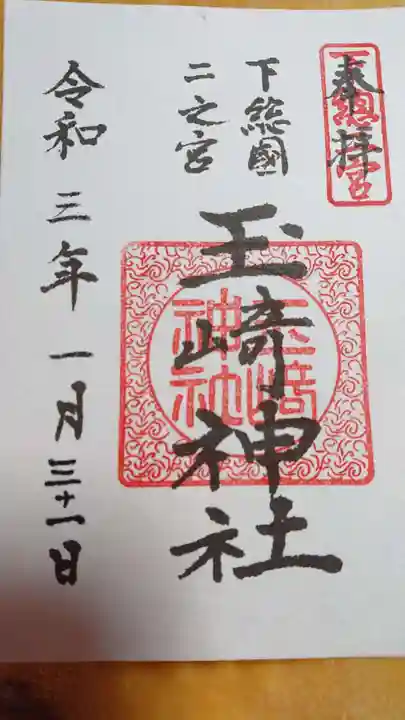 奉拝
下總二宮
下総國
二之宮
玉﨑神社
玉﨑神社
令和三年一月三十一日